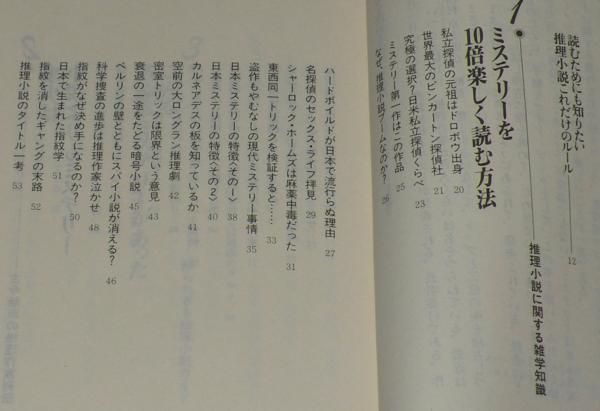 読むためにも知りたい
推理小説これだけのルール 12
1・ミステリーを
10倍楽しく読む方法
推理小説に関する雑学知識
私立探偵の元祖はドロボウ出身 20
世界最大のピンカートン探偵社 21
究極の選択?日米私立探偵くらべ 23
ミステリー第一作はこの作品 25
なぜ、推理小説ブームなのか? 26
ハードボイルドが日本で流行らぬ理由 27
名探偵のセックス・ライフ拝見 29
シャーロック・ホームズは麻薬中毒だった 31
東西同一トリックを検証すると…… 33
盗作もやむなしの現代ミステリー事情 35
日本ミステリーの特徴〈その1〉 38
日本ミステリーの特徴〈その2〉 40
カルネアデスの板を知っているか 41
空前の大ロングラン推理劇 42
密室トリックは限界という意見 43
衰退の一途をたどる暗号小説 45
ベルリンの壁とともにスパイ小説が消える? 46
科学捜査の進歩は推理作家泣かせ 48
指紋がなぜ決め手になるのか? 50
日本で生まれた指紋学 51
指紋を消したギャングの末路 52
推理小説のタイトル一考 53